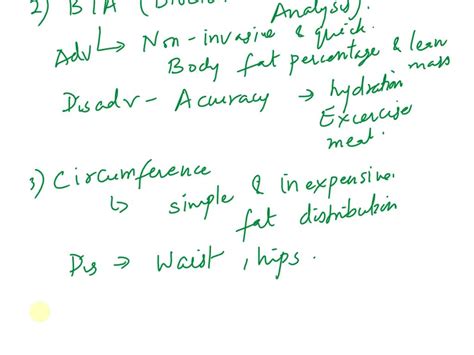 2) BIA (
Analysis).
Adv ↳ Non-invasive & quick.
Body fat percentage & lean mass
Disadv - Accuracy → hydration
Excercise
meat.
3) Circumference
↳ simple & inexpensive.
fat distribution
Dis → Waist, hips.